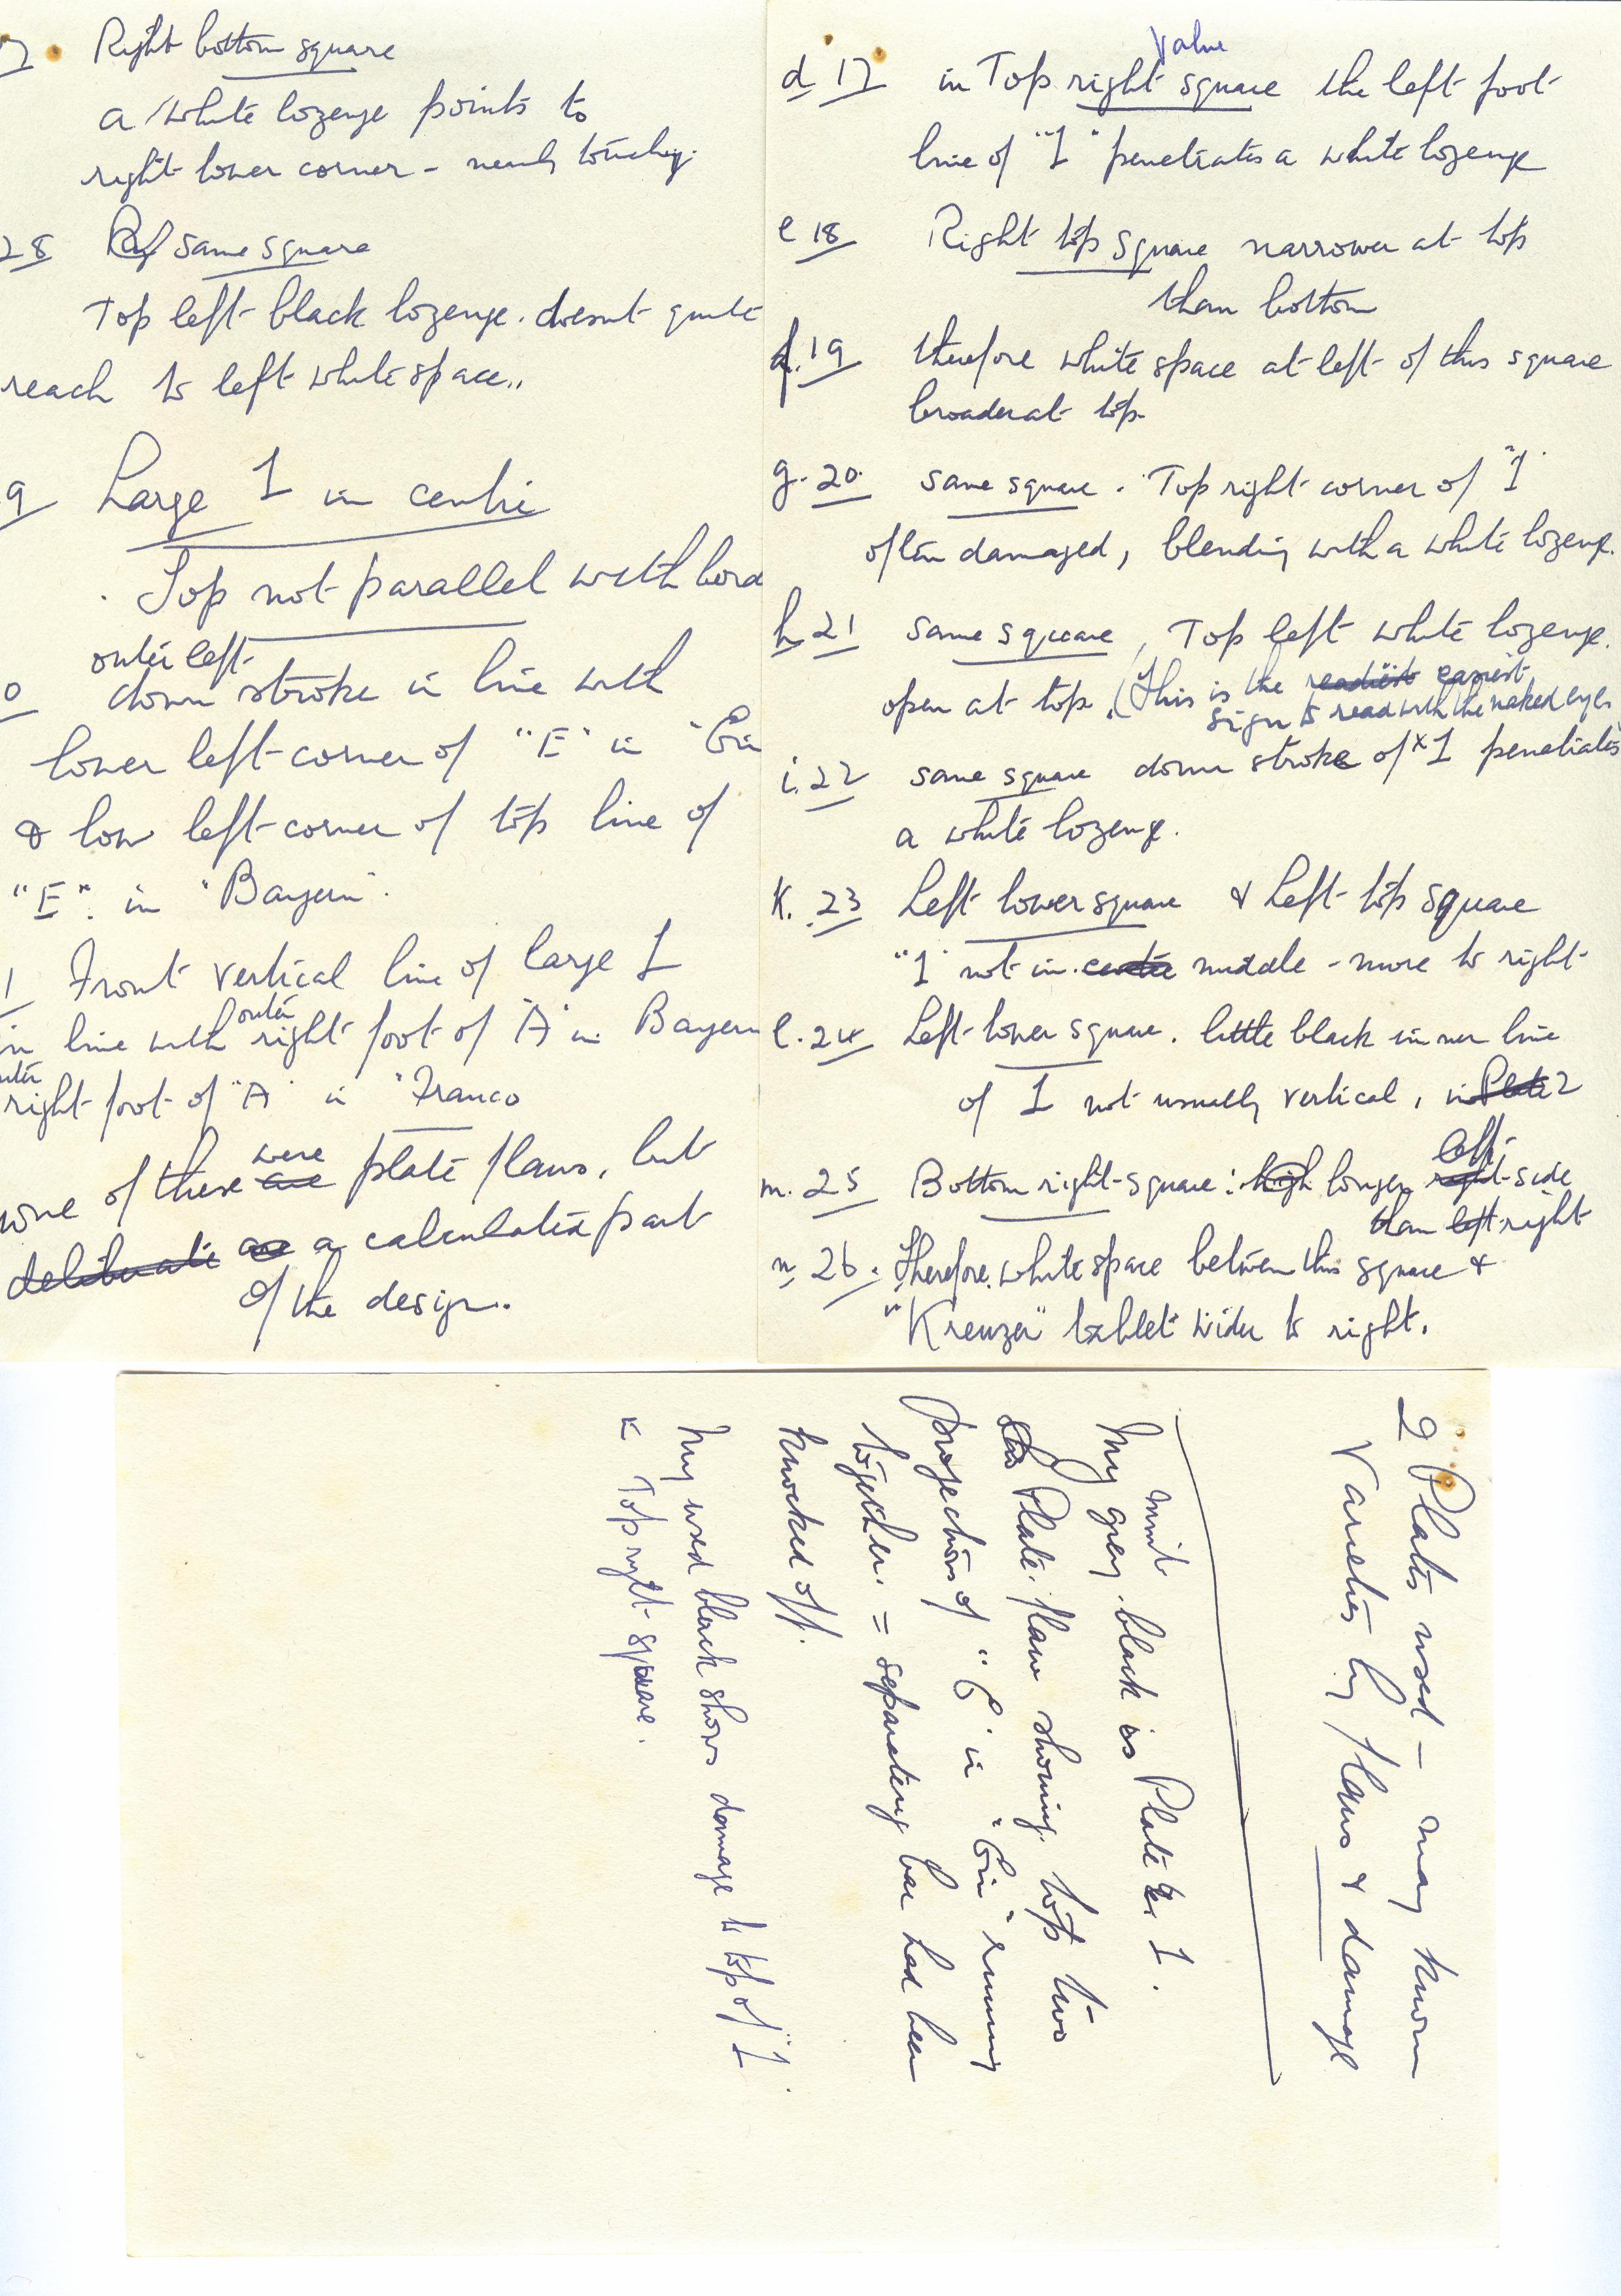 7 Right bottom square
a white lozenge points to
right lower corner - nearly touching.
28 same square
Top left black lozenge. doesnt quite
reach to left white space..
9 Large 1 in centre
. Top not parallel with bord
outer left
0 down stroke in line with
lower left corner of "E" in "Ein
& low left corner of top line of
"E". in "Bayern".
1 Front vertical line of large 1
outer
in line with right foot of "A" in Bayern
outer
right foot of "A" in "Franco
were
none of these are plate flaws, but
deliberate as a calculated part
of the design.
Value
d 17 in Top right square the left foot
line of "1" penetrates a white lozenge
e 18 Right top square narrower at top
than bottom
f. 19 therefore white space at left of this square
broader at top.
g. 20. same square. Top right corner of "1"
often damaged, blending with a white lozenge.
h 21 same square, Top left white lozenge.
open at top. (This is the readiest easiest
sign to read with the naked eye.
i. 22 same square down stroke of "1 penetrates
a white lozenge.
K. 23 Left lower square & Left top square
"1" not in centre middle - more to right
l. 24 Left lower square. little black inner line
of 1 not usually vertical, in Plate 2
left
m. 25 Bottom right square: high longer right side
than left right
n. 26. Therefore white space between this square &
"Kreuzer" tablet wider to right.
2 Plates used - may known
Varieties by flaws & damage
mint
My grey black is Plate 1.
Plate flaw showing top two
projections of "E" in "Ein" running
together. = separating bar had been
knocked off.
My used black shows damage to top of "1".
Top right square.